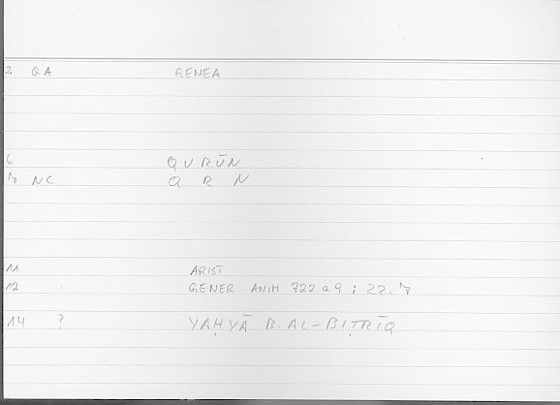 2 QA GENEA
6 QURŪN
10 NC Q R N
11 ARIST
12 GENER ANIM 722 a 9 ; 22.
14 ? YAḤYĀ B. AL-BIṬRĪQ